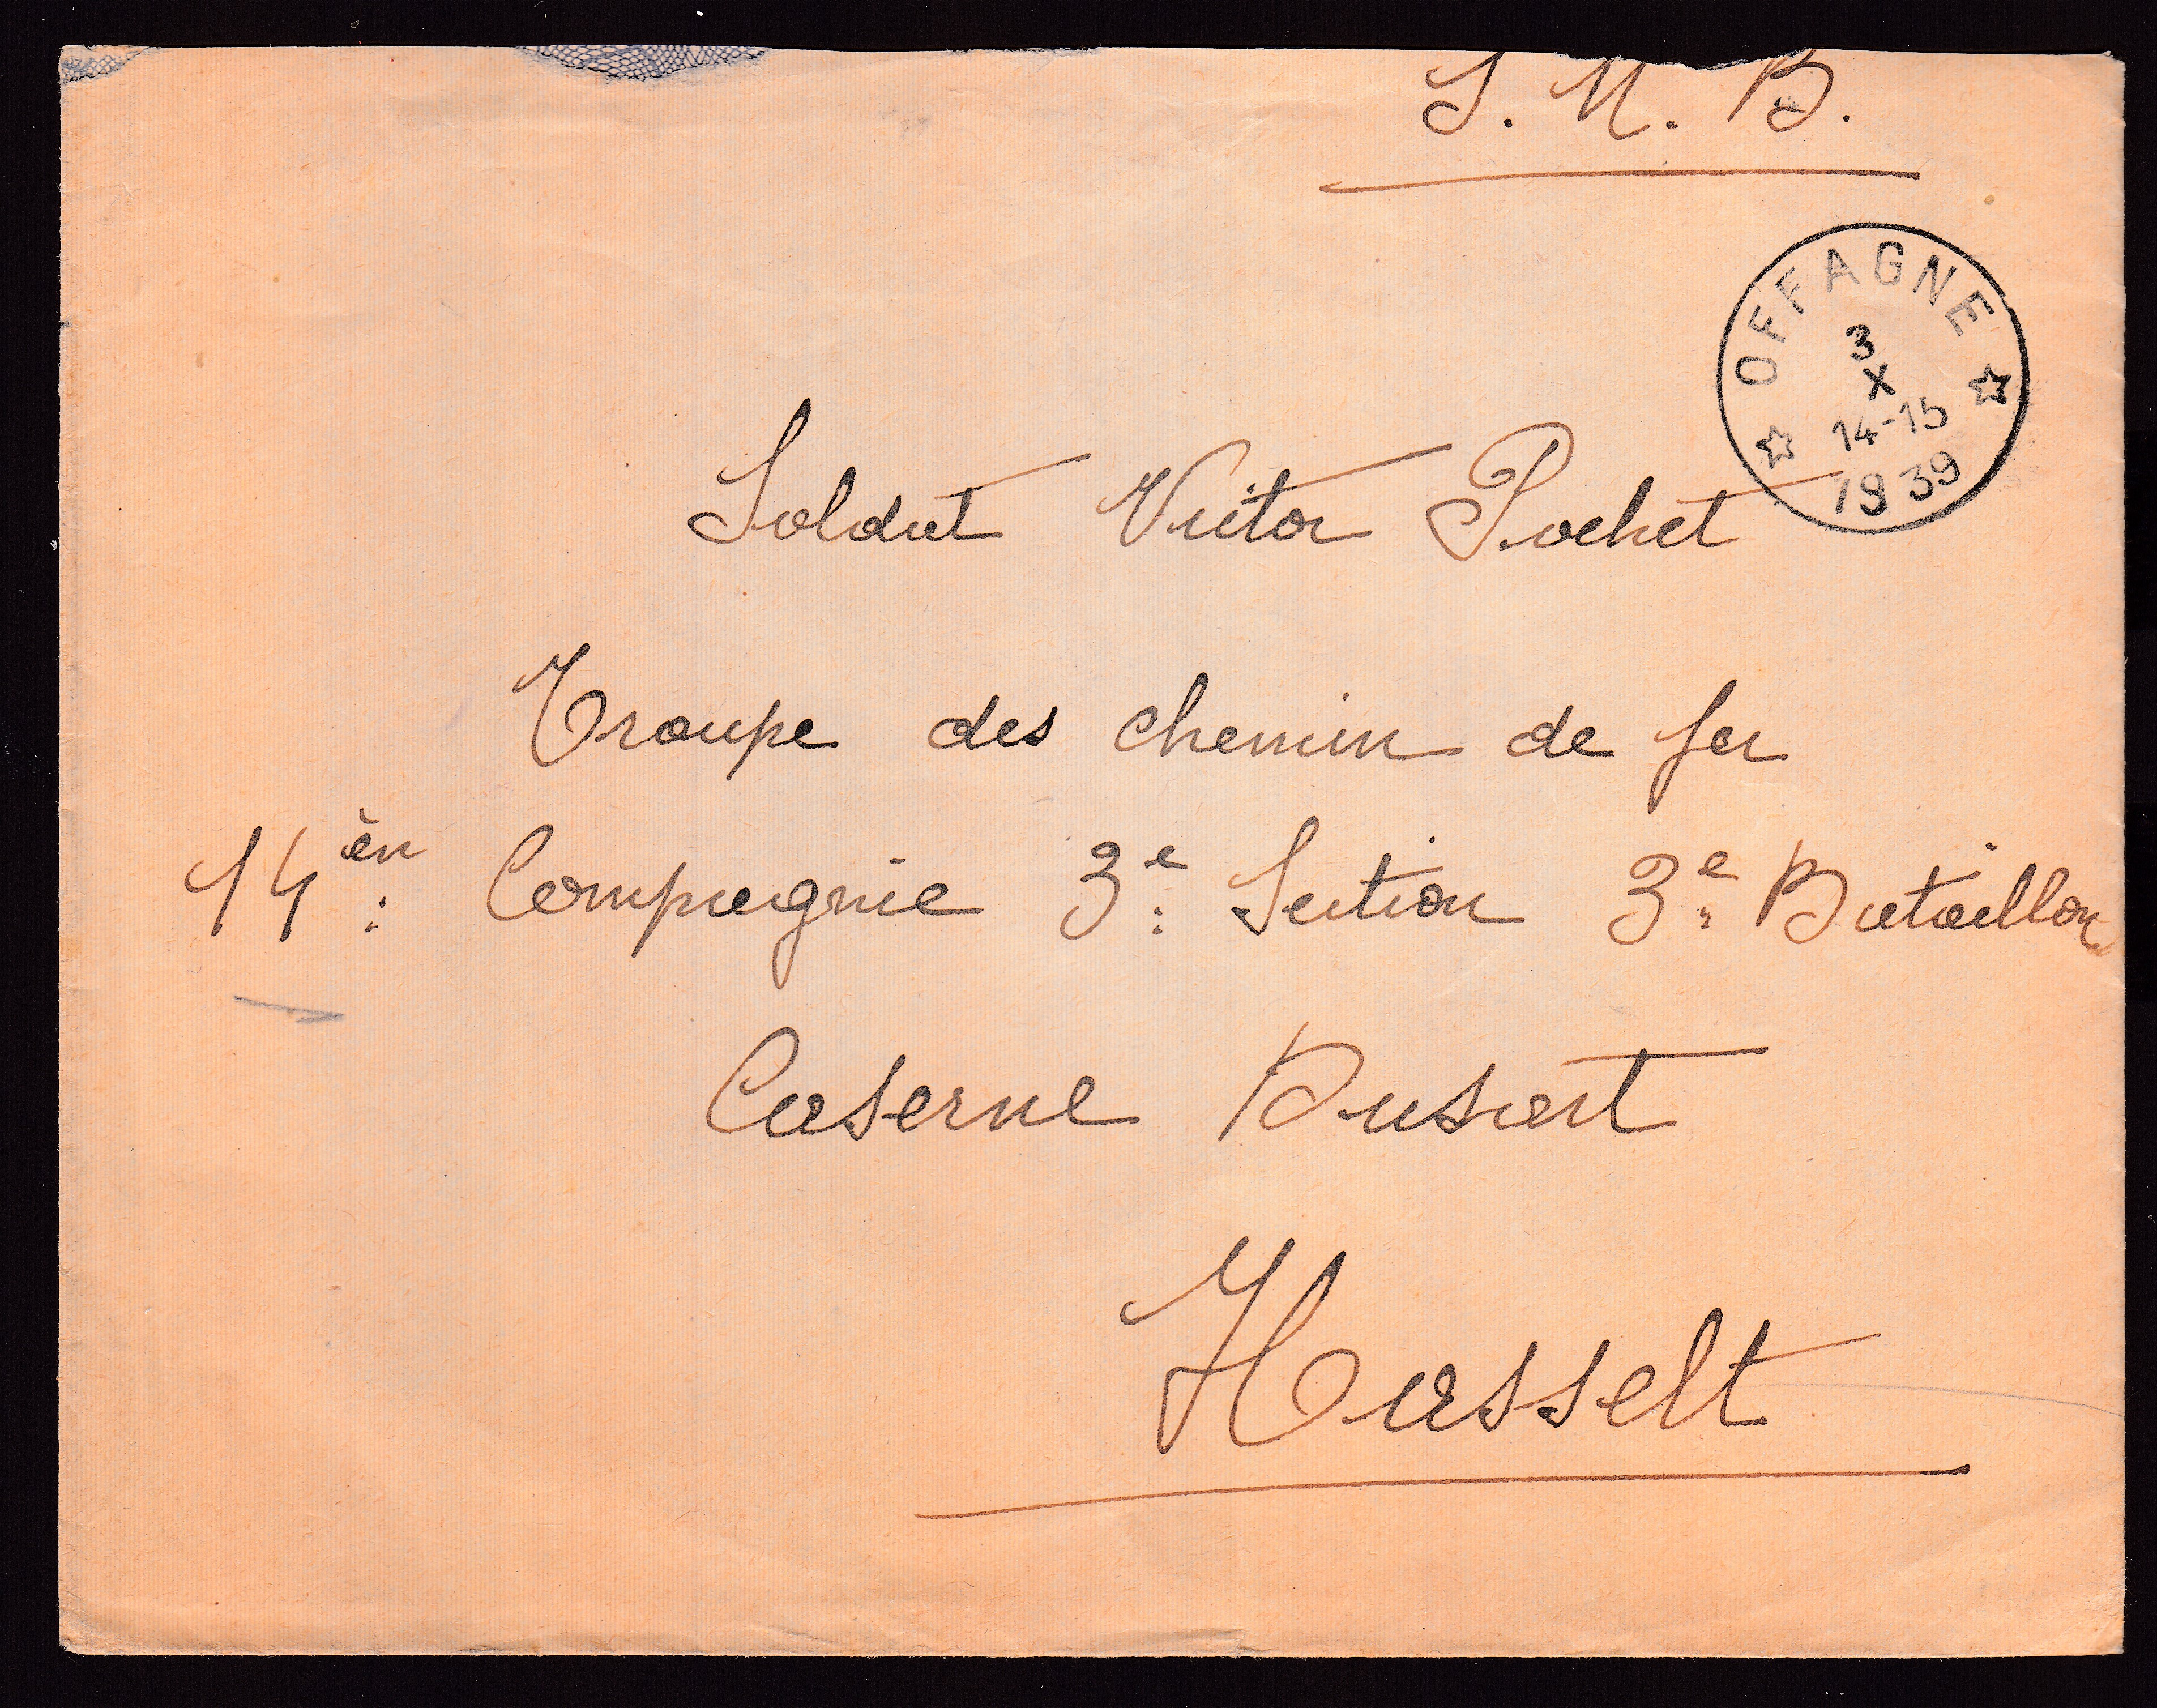 S. M. B.
OFFAGNE
3
X
14-15
1939
Soldat Victor Pochet
Troupe des chemin de fer
14èm Compagnie 3e Section 3e Bataillon
Caserne Dusart
Hasselt